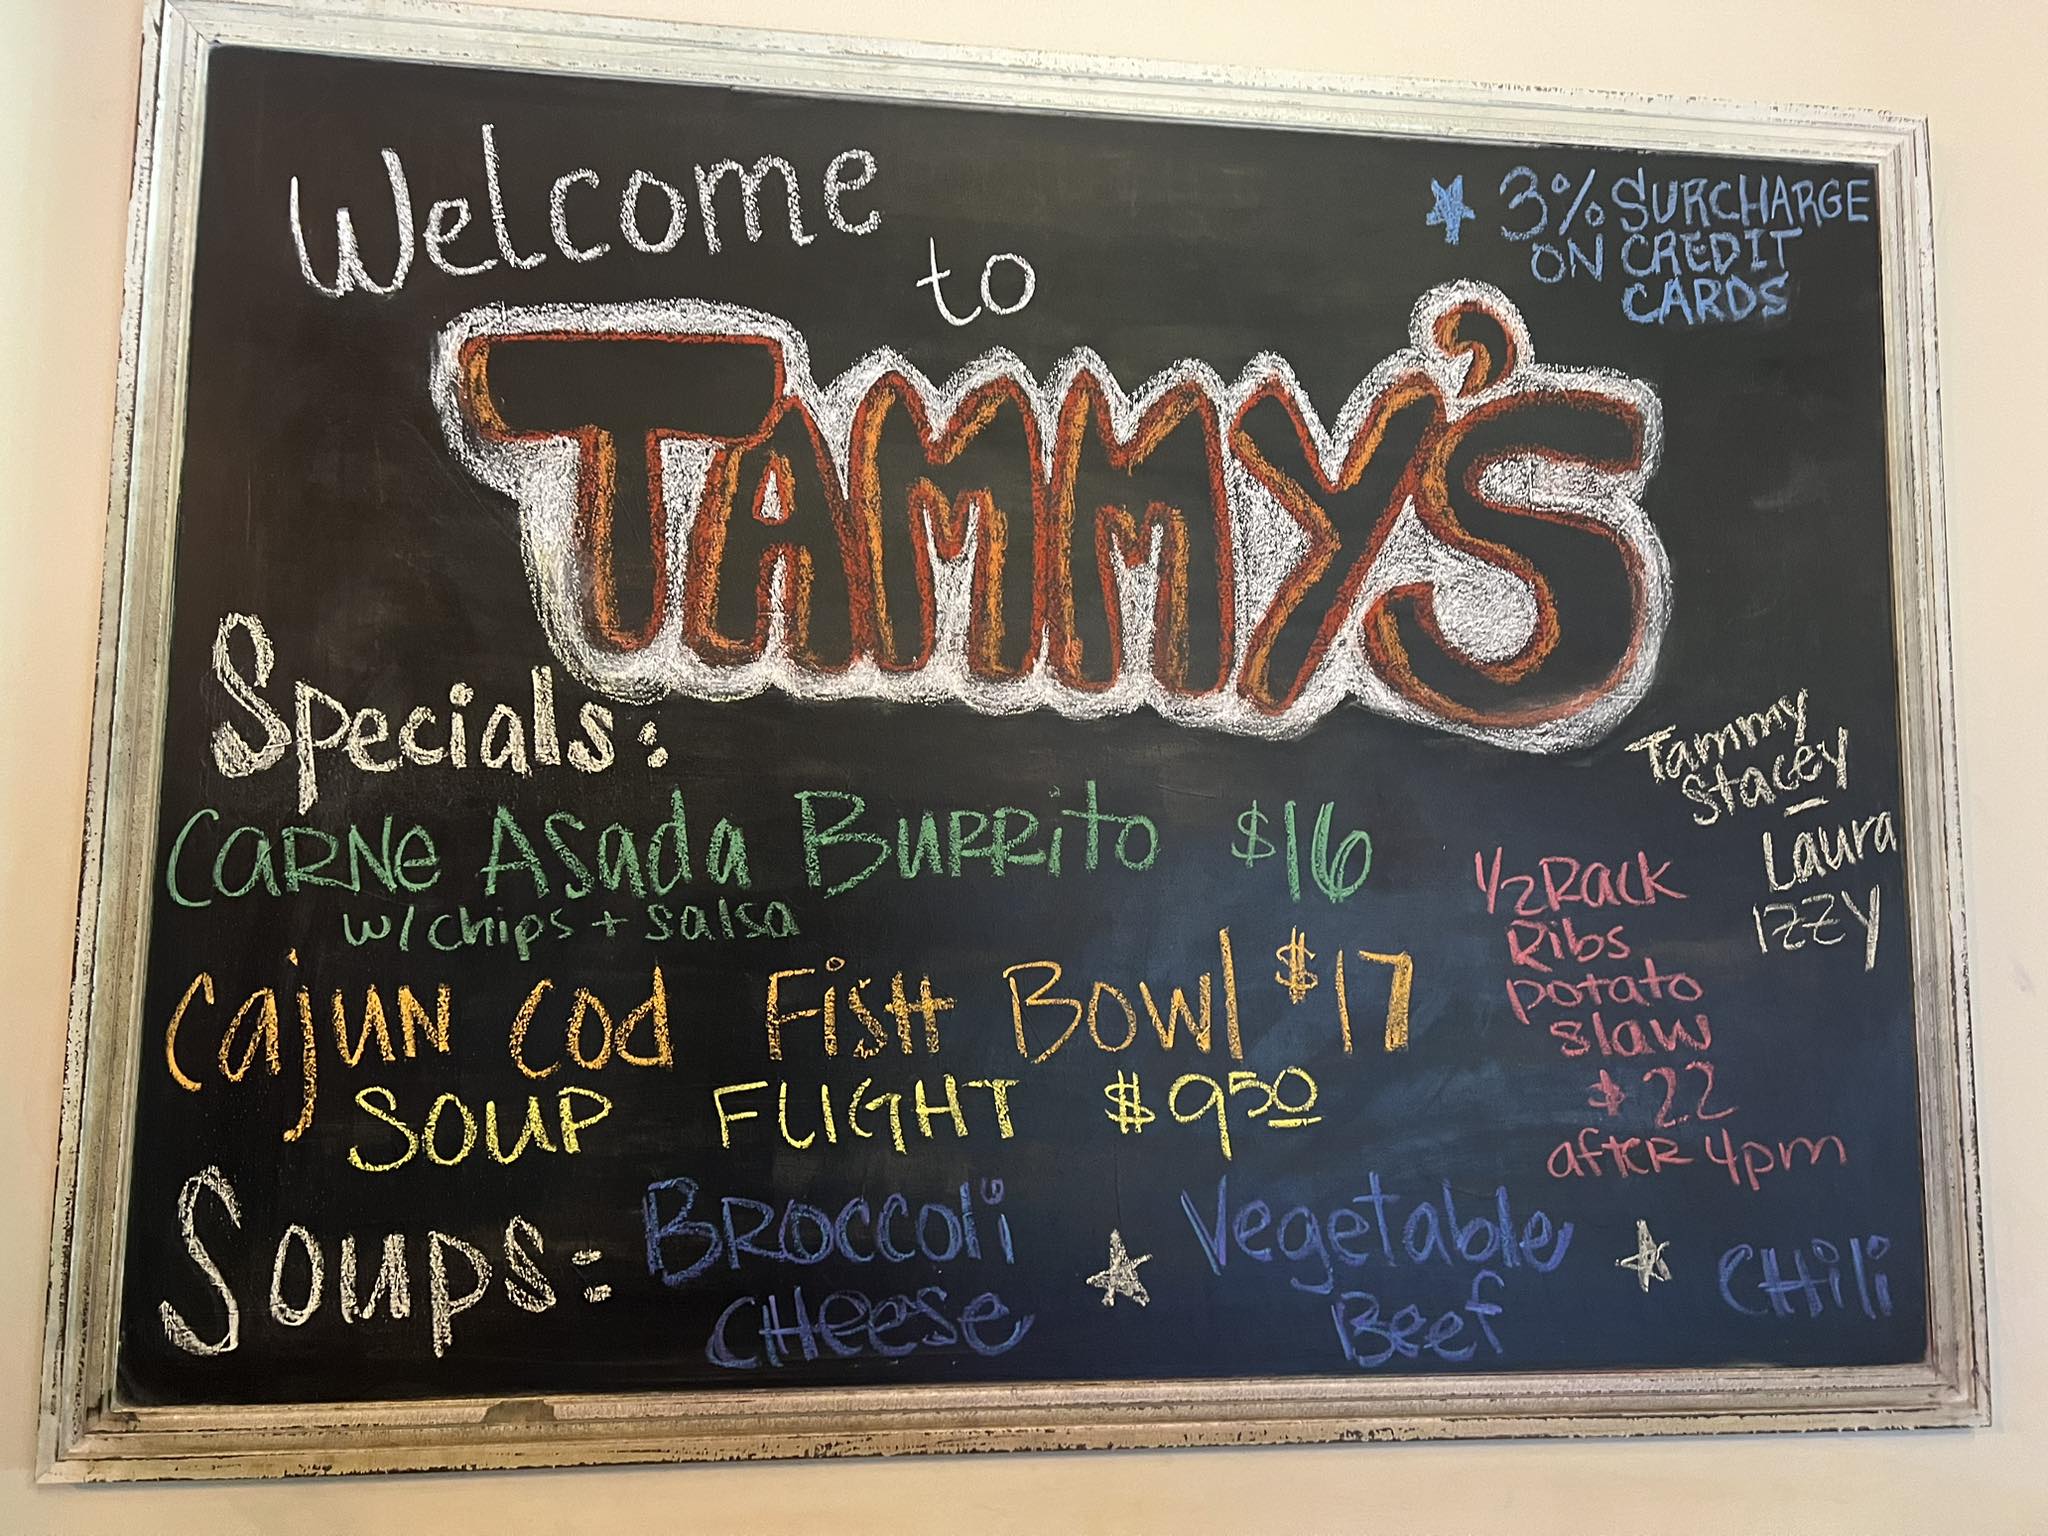 Welcome
to
TAMMY'S
★ 3% SURCHARGE
ON CREDIT
CARDS
Specials:
CARNe Asada BURRito $16
w/chips + salsa
Cajun Cod FisH Bowl $17
SOUP FLIGHT $950
Tammy
Stacey
Laura
IZZY
1/2 Rack
Ribs
potato
slaw
$22
afteR 4pm
Soups: BRoccoli
CHeese
★ Vegetable
Beef
★ CHili